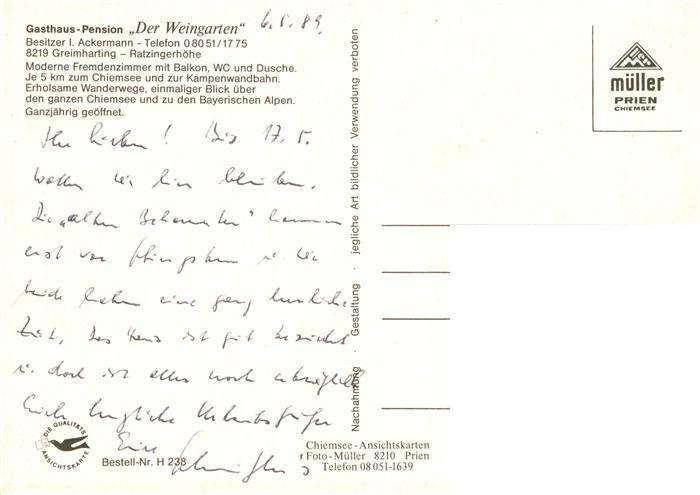 Gasthaus-Pension „Der Weingarten" 6.5.89
Besitzer I. Ackermann - Telefon 0 80 51/17 75
8219 Greimharting - Ratzingerhöhe
Moderne Fremdenzimmer mit Balkon, WC und Dusche.
Je 5 km zum Chiemsee und zur Kampenwandbahn.
Erholsame Wanderwege, einmaliger Blick über
den ganzen Chiemsee und zu den Bayerischen Alpen.
Ganzjährig geöffnet.
Ihr Lieben! Bis 17.5.
wollen wir hier bleiben.
Die „alten Bekannten" kommen
erst vor Pfingsten u. wir
beide haben eine ganz herrliche
Zeit, das Haus ist gut besucht
u. doch ist alles noch
Euch herzliche Urlaubsgrüße
Eure
DIE QUALITÄTS
ANSICHTSKARTE
Bestell-Nr. H 238
Nachahmung · Gestaltung · jegliche Art bildlicher Verwendung verboten
müller
PRIEN
CHIEMSEE
Chiemsee-Ansichtskarten
Foto-Müller 8210 Prien
Telefon 08 051-1639